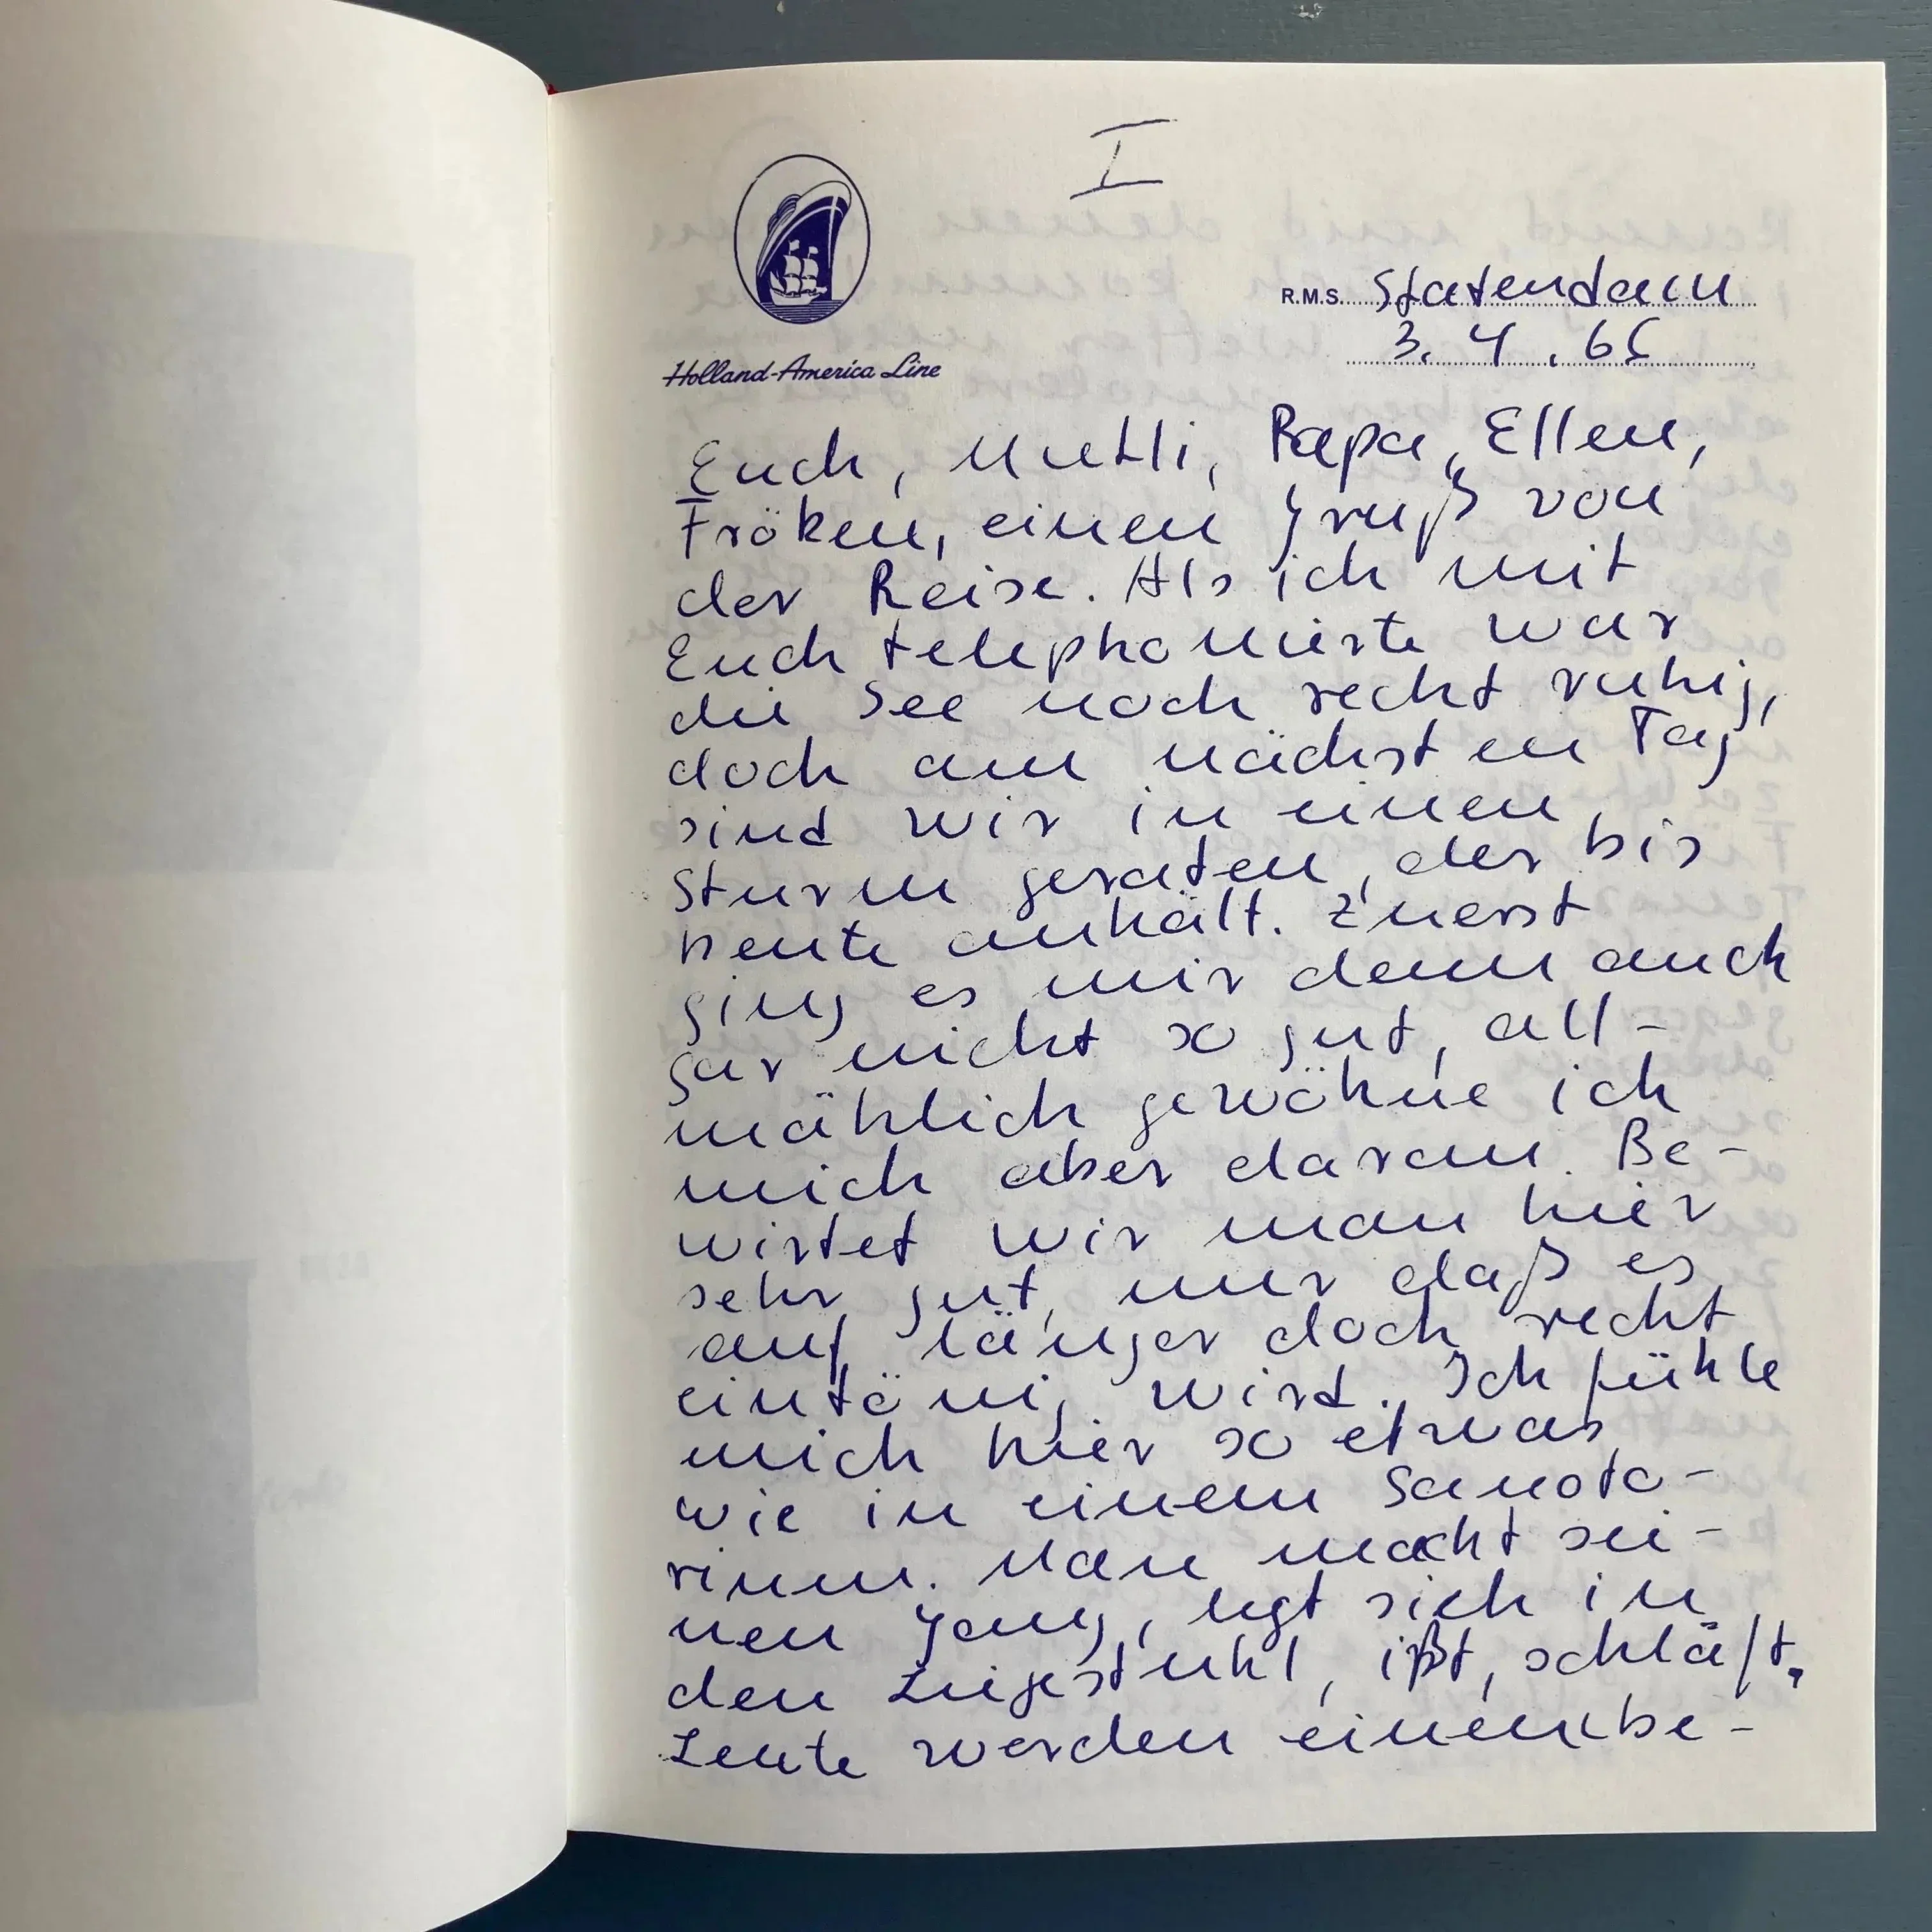 I
R.M.S. Statendam
3. 4. 65
Holland-America Line
Euch, Mutti, Papa, Ellen,
Fröken, einen Gruß von
der Reise. Als ich mit
Euch telephonierte war
die See noch recht ruhig,
doch am nächsten Tag
sind wir in einen
Sturm geraten, der bis
heute anhält. Zuerst
ging es mir denn auch
gar nicht so gut, all-
mählich gewöhne ich
mich aber daran. Be-
wirtet wir man hier
sehr gut, nur daß es
auf länger doch recht
eintönig wird. Ich fühle
mich hier so etwas
wie in einem Sanoto-
rium. Man macht sei-
nen Gang, legt sich in
den Liegestuhl, ißt, schläft,
Leute werden einem be-